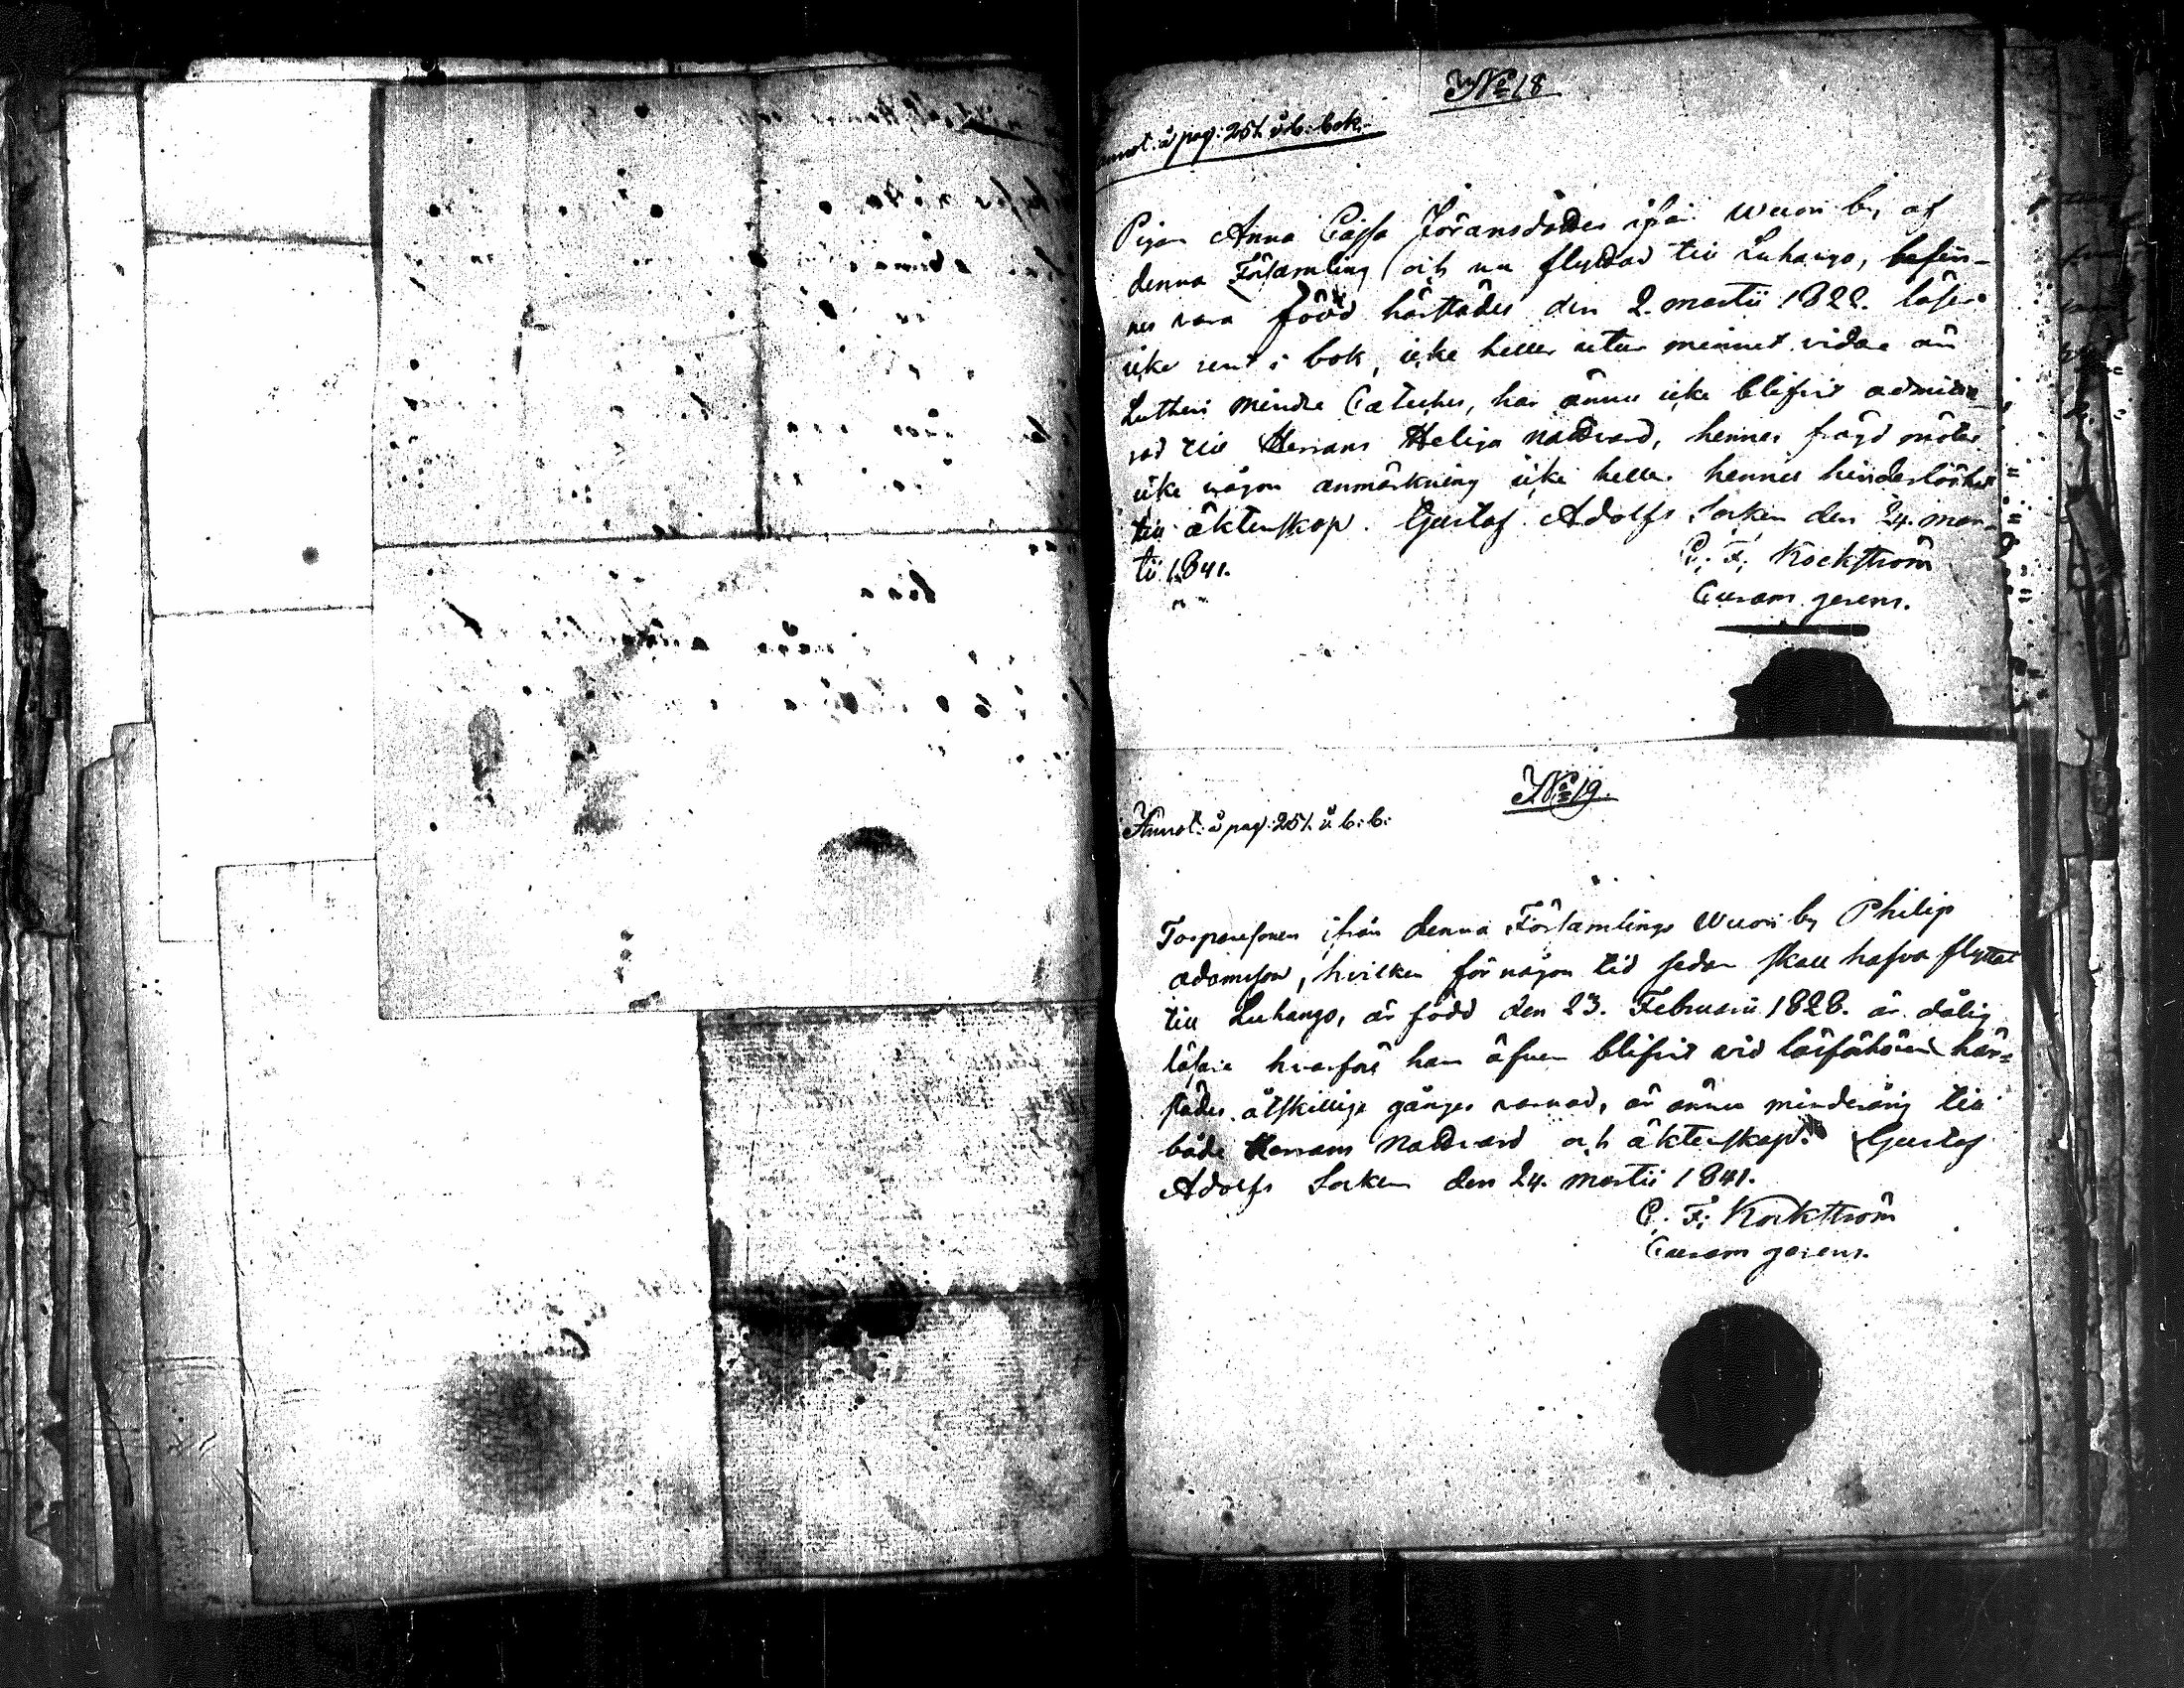 No 18
Annot: å pag: 251. i b: bok.
Pigan Anna Cajsa Jöransdotter ifrån Wuori by af
denna Församling och nu flyttad till Luhango, befin-
nes vara född härstädes den 2. martii 1822. läser
icke rent i bok, icke heller utur minnet vidare än
Lutheri Mindre Cateches, har ännu icke blifvit admitte-
rad till Herrans Heliga Nattvard, hennes frägd möter
icke någon anmärkning icke heller hennes hinderlöshet
till äktenskap. Gustaf Adolfs Socken den 24. mar-
tii 1841.
C. F. Rockström
Curam gerens.
No 19.
Annot: å pag: 251. i b: b:
Torparesonen ifrån denna Församlings Wuori by Philip
Adamsson, hvilken för någon tid sedan skall hafva flyttat
till Luhango, är född den 23. Februarii 1828. är dålig
läsare hvarföre han äfven blifvit vid läsförhören här-
städes åtskillige gånger varnad, är ännu minderårig till
både Herrans Nattvard och äktenskap. Gustaf
Adolfs Socken den 24. Martii 1841.
C. F. Rockström
Curam gerens.